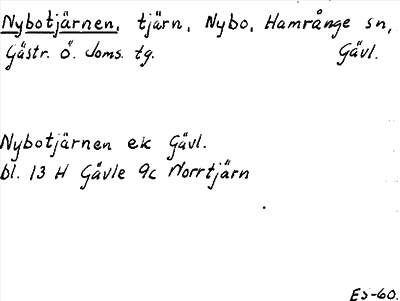 Nybotjärnen, tjärn, Nybo, Hamrånge sn,
Gästr. Ö. Doms. tg. Gävl.
Nybotjärnen ek Gävl.
bl. 13 H Gävle 9c Norrtjärn
ES-60.